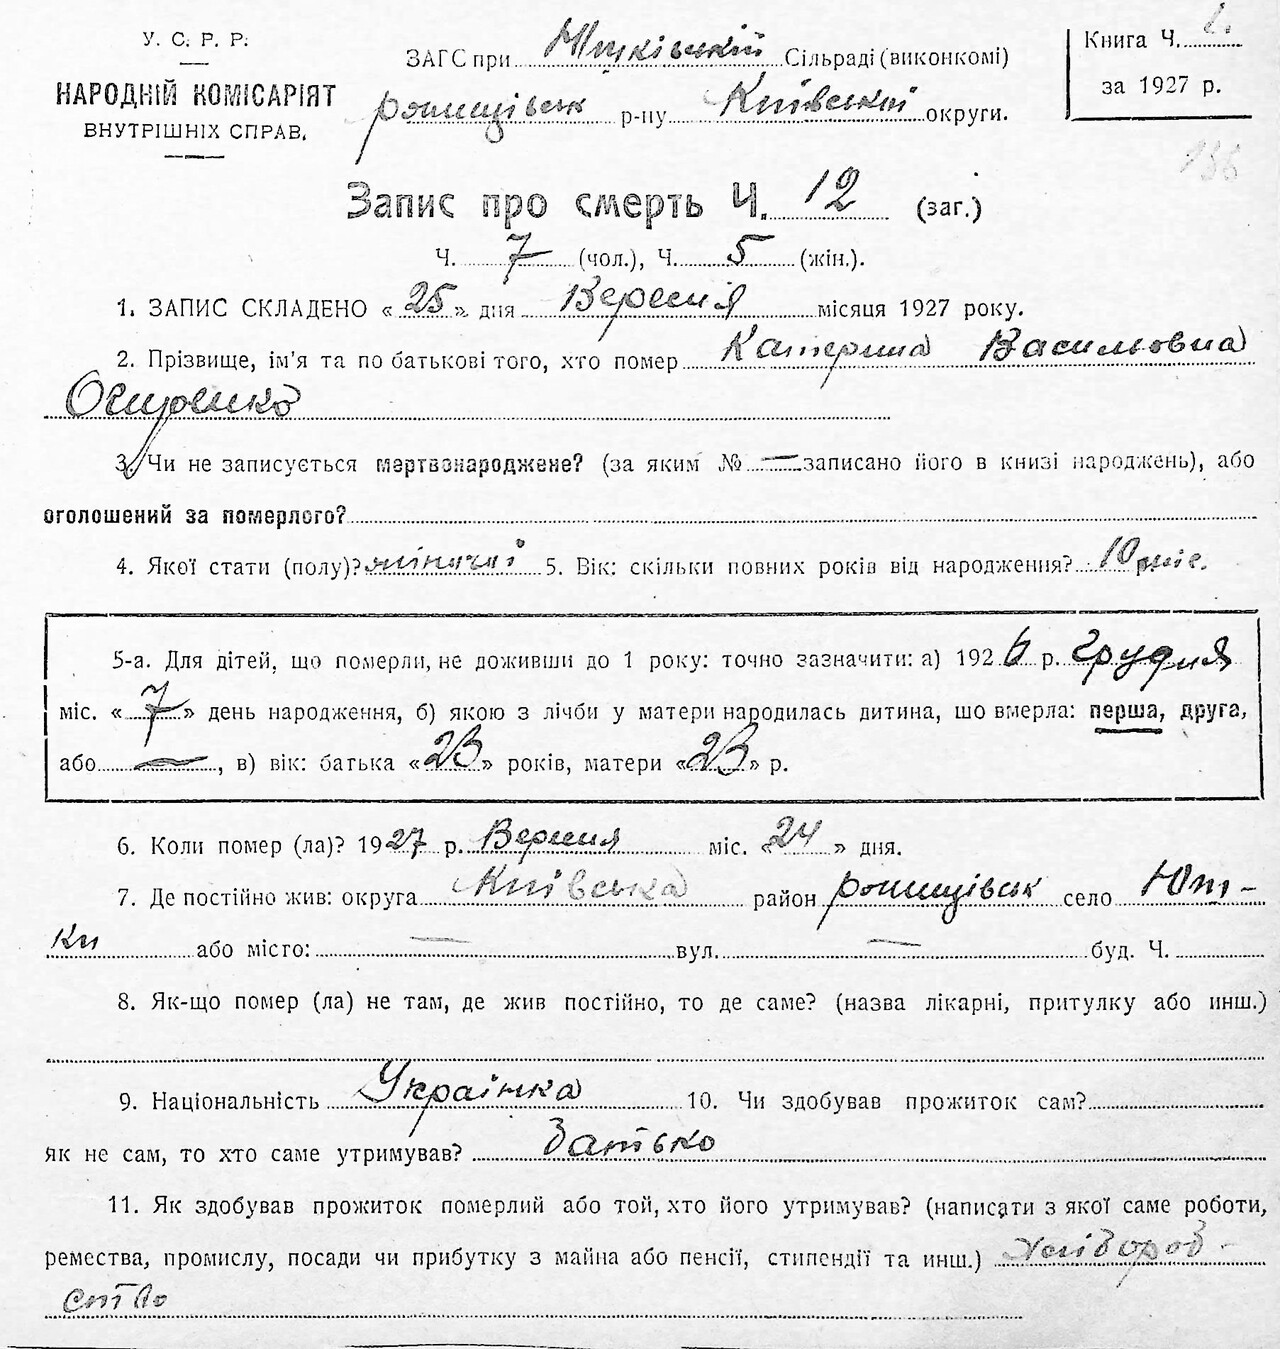 У. С. Р. Р.
НАРОДНІЙ КОМІСАРІЯТ
ВНУТРІШНІХ СПРАВ.
ЗАГС при Юшківській Сільраді (виконкомі)
р-ну Київської округи.
Книга Ч.
за 1927 р.
186
Запис про смерть Ч. 12 (заг.)
Ч. 7 (чол.), Ч. 5 (жін.).
1. ЗАПИС СКЛАДЕНО «25» дня Вересня місяця 1927 року.
2. Прізвище, ім'я та по батькові того, хто помер Катерина Василовна
3. Чи не записується мертвонароджене? (за яким № — записано його в книзі народжень), або
оголошений за померлого?
4. Якої стати (полу)? жіночої 5. Вік: скільки повних років від народження? 10 міс.
5-а. Для дітей, що померли, не доживши до 1 року: точно зазначити: а) 1926 р. Грудня
міс. «7» день народження, б) якою з лічби у матери народилась дитина, що вмерла: перша, друга,
або —, в) вік: батька «23» років, матери «23» р.
6. Коли помер (ла)? 1927 р. Вересня міс. «24» дня.
7. Де постійно жив: округа Київська район село Юш-
ки або місто: — вул. — буд. Ч.
8. Як-що помер (ла) не там, де жив постійно, то де саме? (назва лікарні, притулку або инш.)
9. Національність Українка 10. Чи здобував прожиток сам?
як не сам, то хто саме утримував? Батько
11. Як здобував прожиток померлий або той, хто його утримував? (написати з якої саме роботи,
ремества, промислу, посади чи прибутку з майна або пенсії, стипендії та инш.) Хлібороб-
ство